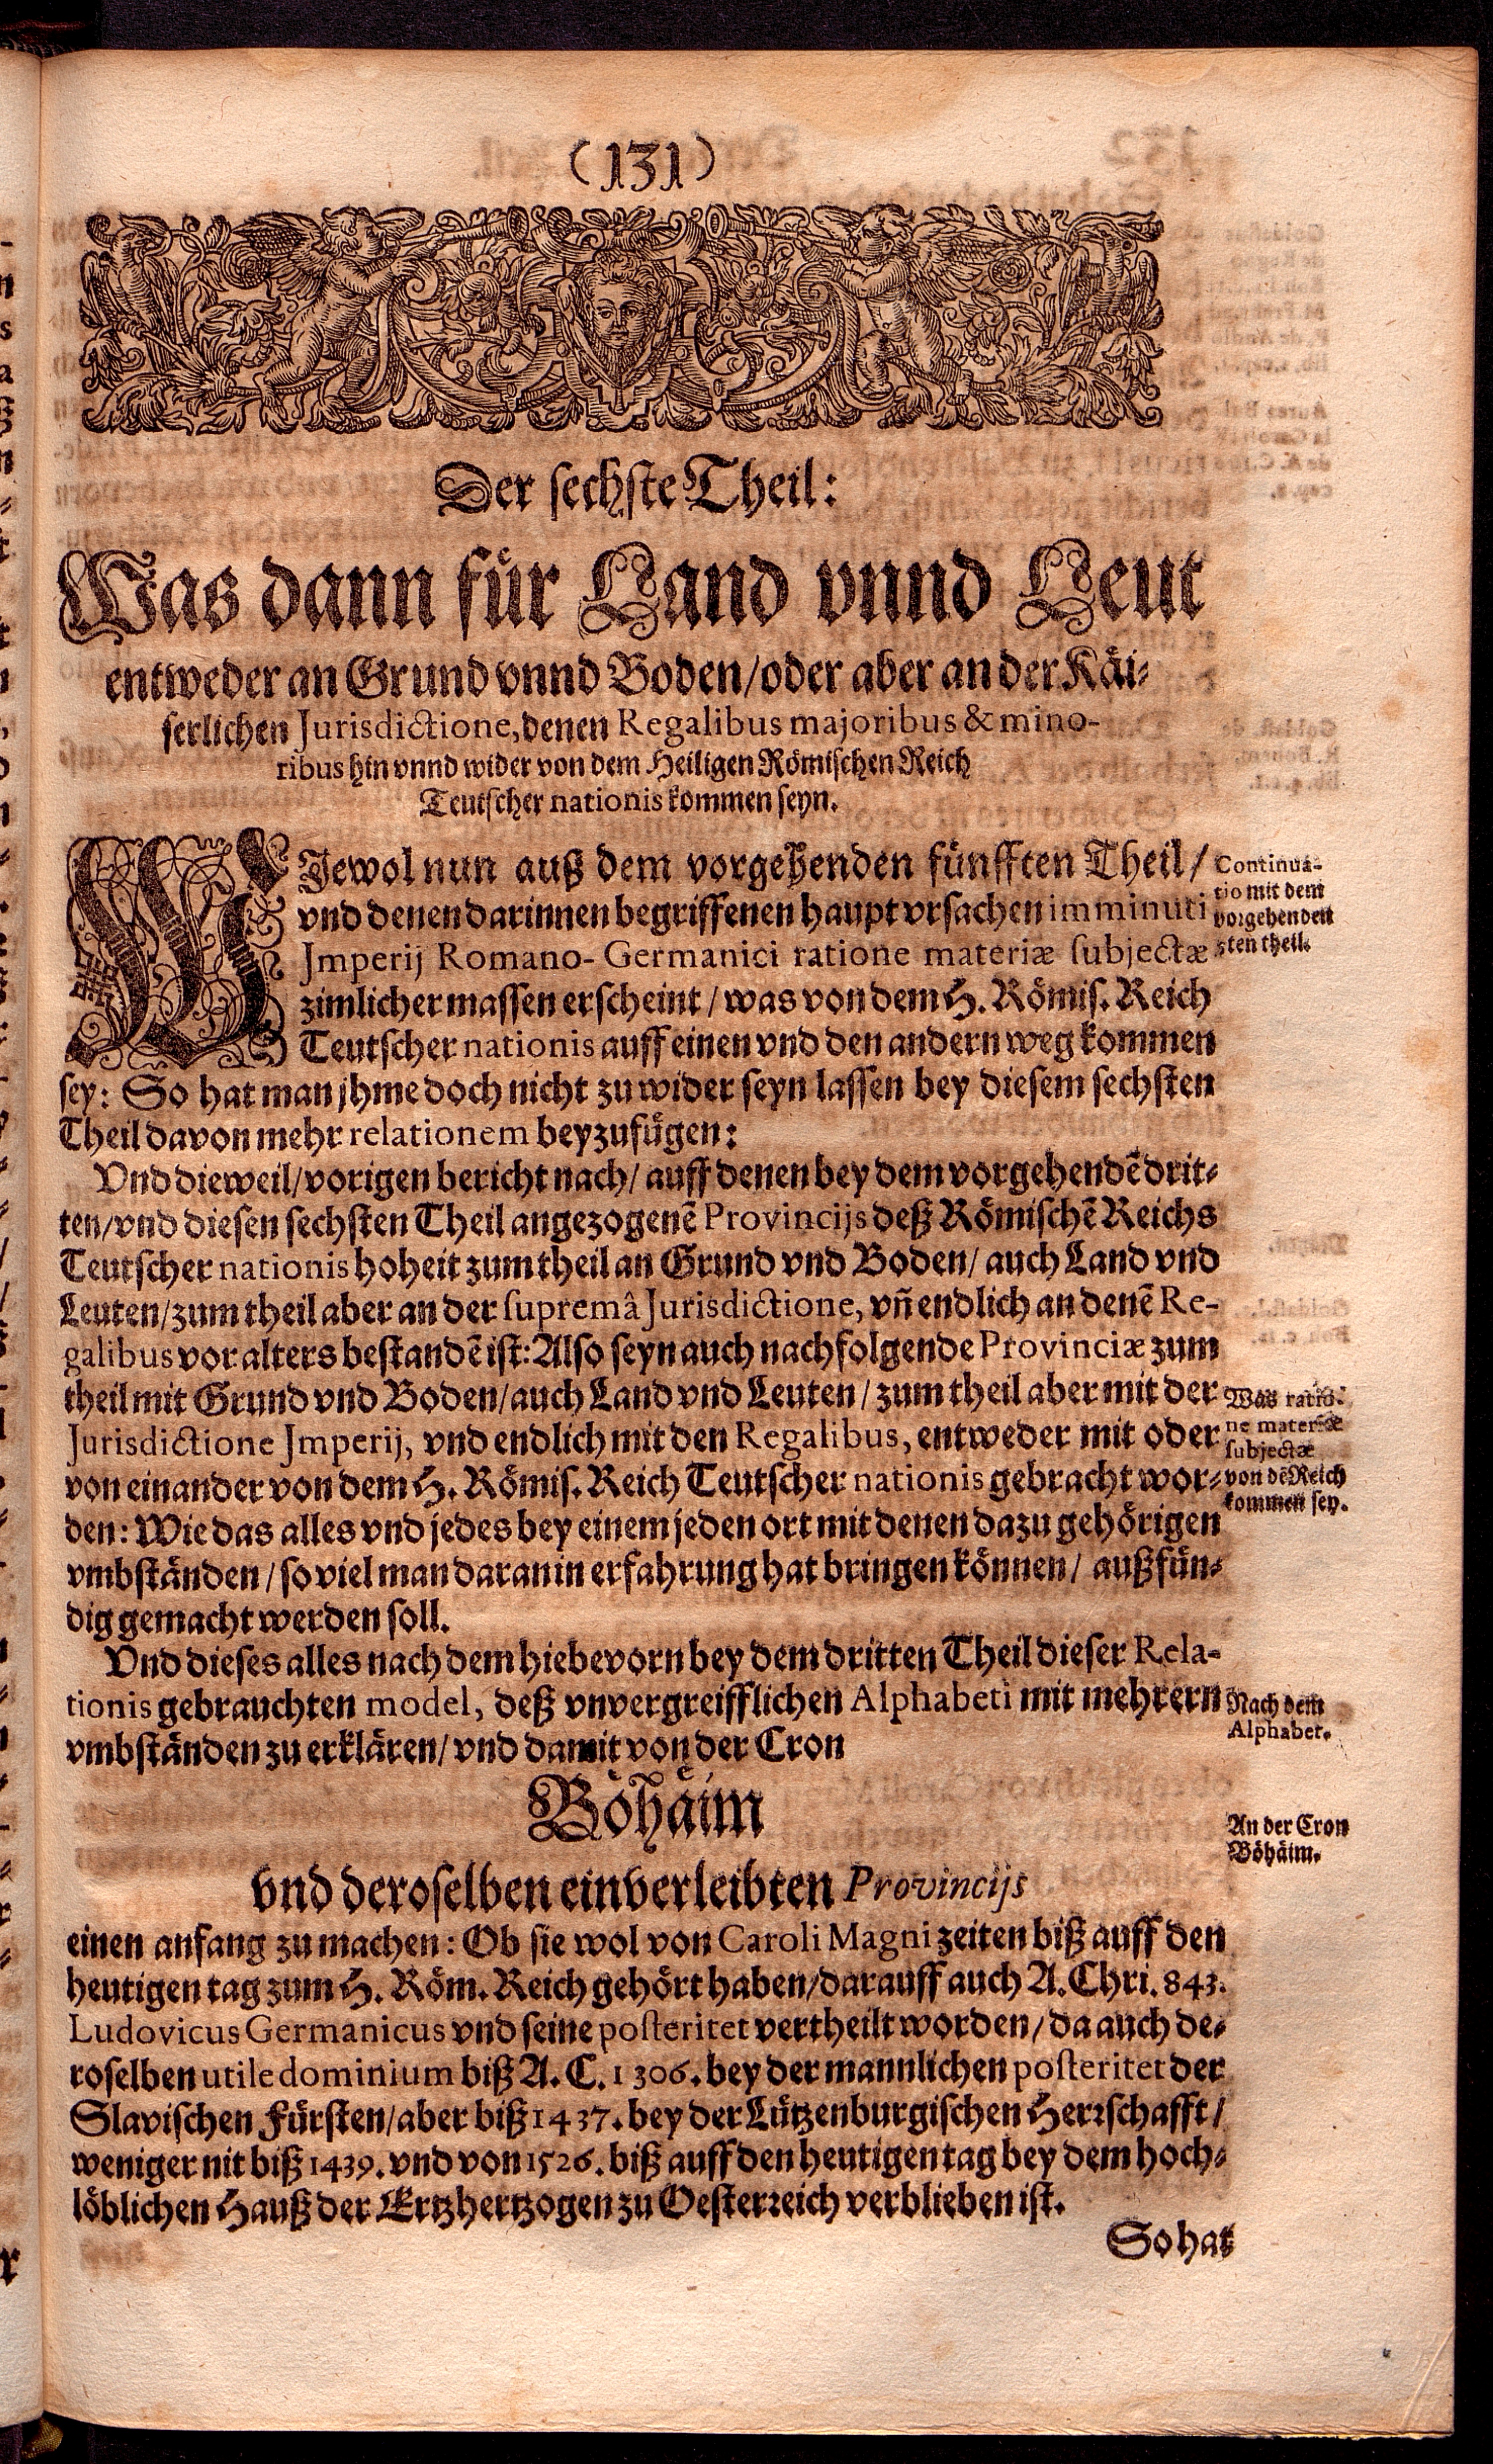 (131)
Der sechste Theil:
Was dann für Land vnnd Leut
entweder an Grund vnnd Boden/oder aber an der Käi-
serlichen Jurisdictione, denen Regalibus majoribus & mino-
ribus hin vnnd wider von dem Heiligen Römischen Reich
Teutscher nationis kommen seyn.
WIewol nun auß dem vorgehenden fünfften Theil/
vnd denen darinnen begriffenen haupt vrsachen imminuti
Jmperij Romano-Germanici ratione materiæ subjectæ
zimlicher massen erscheint/was von dem H. Römis. Reich
Teutscher nationis auff einen vnd den andern weg kommen
sey: So hat man jhme doch nicht zu wider seyn lassen bey diesem sechsten
Theil davon mehr relationem beyzufügen:
Continua-
tio mit dem
vorgehenden
5ten theil.
Vnd dieweil/vorigen bericht nach/auff denen bey dem vorgehendē drit-
ten/vnd diesen sechsten Theil angezogenē Provincijs deß Römischē Reichs
Teutscher nationis hoheit zum theil an Grund vnd Boden/auch Land vnd
Leuten/zum theil aber an der supremâ Jurisdictione, vñ endlich an denē Re-
galibus vor alters bestandē ist: Also seyn auch nachfolgende Provinciæ zum
theil mit Grund vnd Boden/auch Land vnd Leuten/zum theil aber mit der
Jurisdictione Jmperij, vnd endlich mit den Regalibus, entweder mit oder
von einander von dem H. Römis. Reich Teutscher nationis gebracht wor-
den: Wie das alles vnd jedes bey einem jeden ort mit denen dazu gehörigen
vmbständen/so viel man daran in erfahrung hat bringen können/außfün-
dig gemacht werden soll.
Was ratio-
ne materiæ
subjectæ
von dē Reich
kommen sey.
Vnd dieses alles nach dem hiebevorn bey dem dritten Theil dieser Rela-
tionis gebrauchten model, deß vnvergreifflichen Alphabeti mit mehrern
vmbständen zu erklären/vnd damit von der Cron
Nach dem
Alphabet.
Böhäim
An der Cron
Böhäim.
vnd deroselben einverleibten Provincijs
einen anfang zu machen: Ob sie wol von Caroli Magni zeiten biß auff den
heutigen tag zum H. Röm. Reich gehört haben/darauff auch A. Chri. 843.
Ludovicus Germanicus vnd seine posteritet vertheilt worden/da auch de-
roselben utile dominium biß A. C. 1306. bey der mannlichen posteritet der
Slavischen Fürsten/aber biß 1437. bey der Lützenburgischen Herrschafft/
weniger nit biß 1439. vnd von 1526. biß auff den heutigen tag bey dem hoch-
löblichen Hauß der Ertzhertzogen zu Oesterreich verblieben ist.
So hat